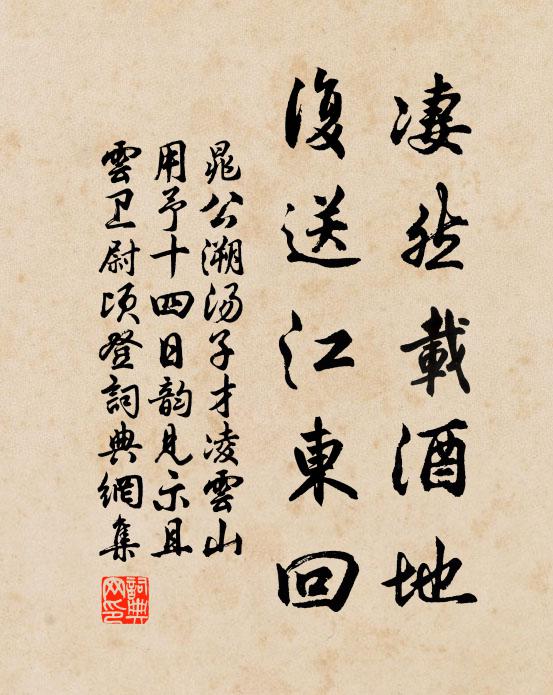 凄然載酒地
復送江東回
晁公溯汤子才凌雲山
用予十四日韵見示且
雲卫尉顷登詞典網集
詞典網印